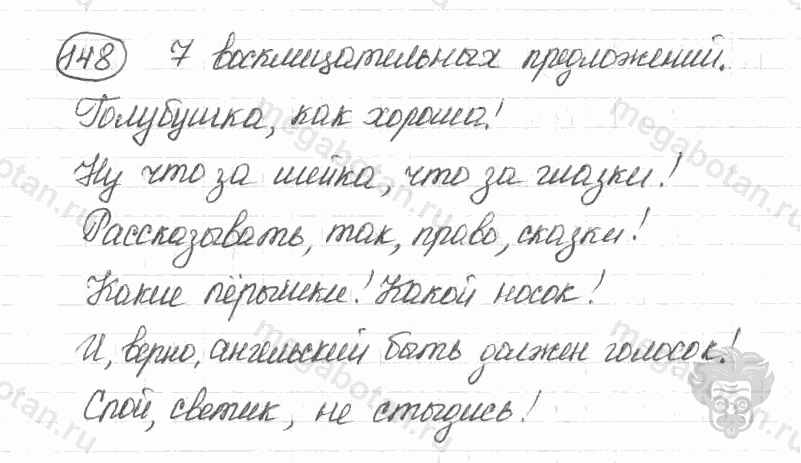 148 7 восклицательных предложений.
Голубушка, как хороша!
Ну что за шейка, что за глазки!
Рассказывать, так, право, сказки!
Какие пёрышки! Какой носок!
И, верно, ангельский быть должен голосок!
Спой, светик, не стыдись!
megabotan.ru